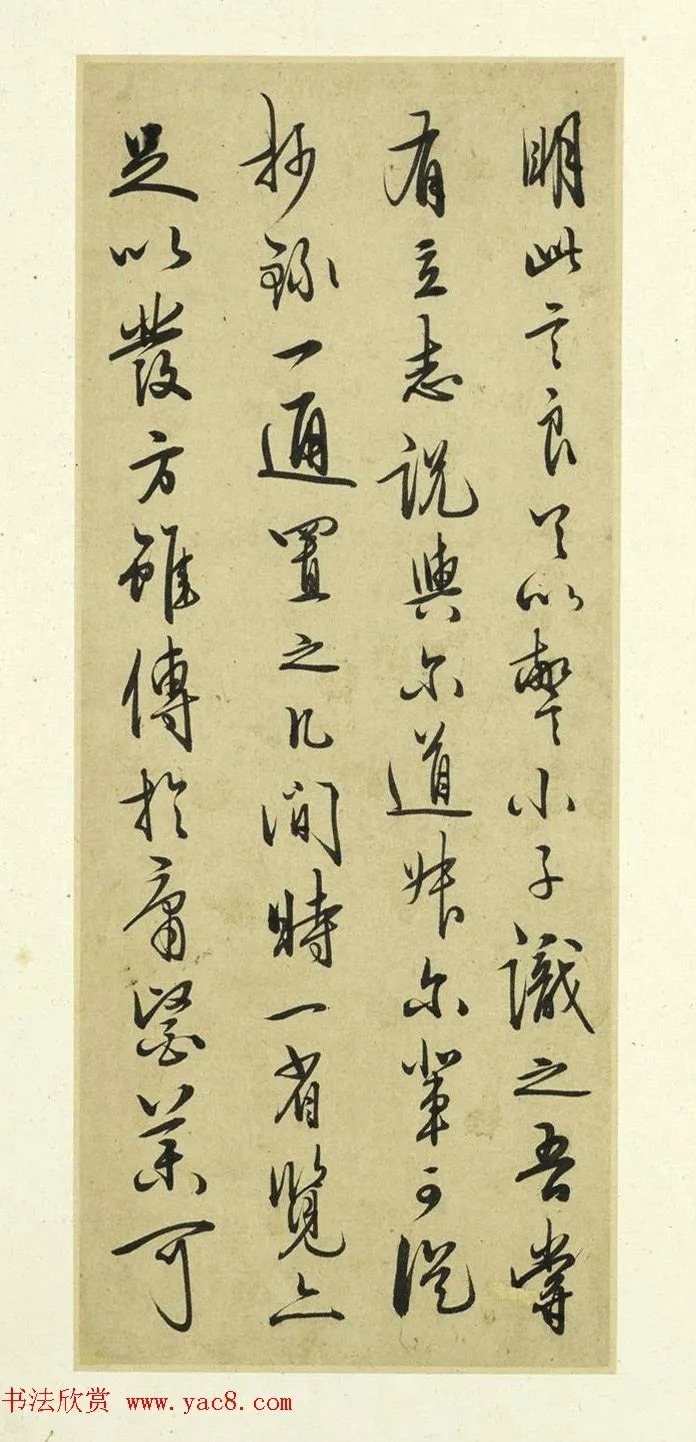 明此言良足以警小子識之吾嘗
有立志説與尔道叔尔輩可從
抄録一通置之几間時一省覽亦
足以發方雖傳於庸醫藥可
书法欣赏 www.yac8.com